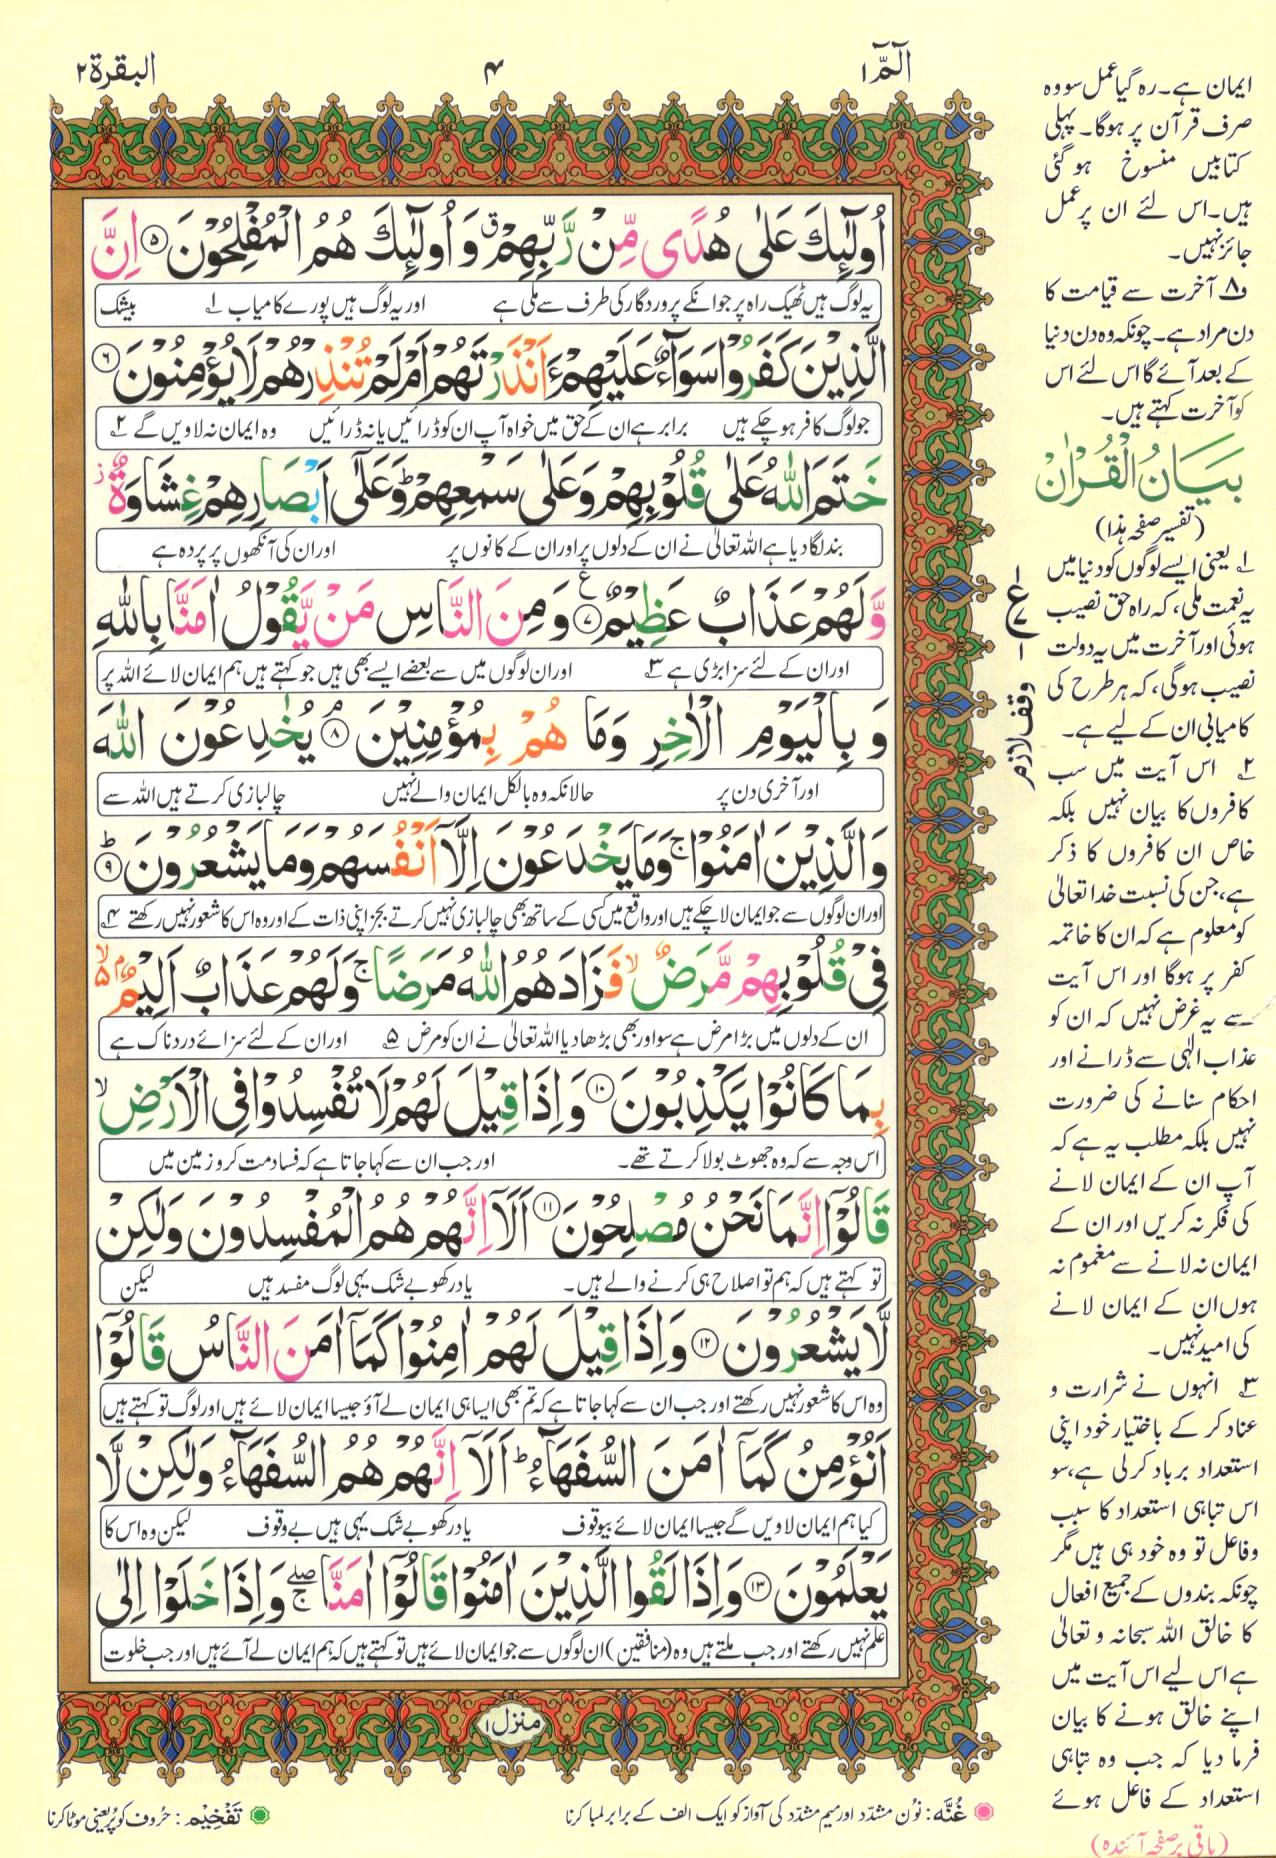 الٓمّٓ ۱
۴
البقرة ۲
اُولٰٓئِكَ عَلٰى هُدًى مِّنْ رَّبِّهِمْ ۗ وَ اُولٰٓئِكَ هُمُ الْمُفْلِحُوْنَ ۵ اِنَّ
یہ لوگ ہیں ٹھیک راہ پر جو انکے پروردگار کی طرف سے ملی ہے اور یہ لوگ ہیں پورے کامیاب ۱ بیشک
الَّذِيْنَ كَفَرُوْا سَوَآءٌ عَلَيْهِمْ ءَاَنْذَرْتَهُمْ اَمْ لَمْ تُنْذِرْهُمْ لَا يُؤْمِنُوْنَ ۶
جو لوگ کافر ہو چکے ہیں برابر ہے ان کے حق میں خواہ آپ ان کو ڈرائیں یا نہ ڈرائیں وہ ایمان نہ لاویں گے ۲
خَتَمَ اللّٰهُ عَلٰى قُلُوْبِهِمْ وَعَلٰى سَمْعِهِمْ ؕ وَعَلٰٓى اَبْصَارِهِمْ غِشَاوَةٌ ز
بند لگا دیا ہے اللہ تعالیٰ نے ان کے دلوں پر اور ان کے کانوں پر اور ان کی آنکھوں پر پردہ ہے
وَّلَهُمْ عَذَابٌ عَظِيْمٌ ۷ ع وَمِنَ النَّاسِ مَنْ يَّقُوْلُ اٰمَنَّا بِاللّٰهِ
اور ان کے لئے سزا بڑی ہے ۳ اور ان لوگوں میں سے بعضے ایسے بھی ہیں جو کہتے ہیں ہم ایمان لائے اللہ پر
وَ بِالْيَوْمِ الْاٰخِرِ وَمَا هُمْ بِمُؤْمِنِيْنَ ۘ ۸ يُخٰدِعُوْنَ اللّٰهَ
اور آخری دن پر حالانکہ وہ بالکل ایمان والے نہیں چالبازی کرتے ہیں اللہ سے
وَالَّذِيْنَ اٰمَنُوْا ۚ وَمَا يَخْدَعُوْنَ اِلَّآ اَنْفُسَهُمْ وَمَا يَشْعُرُوْنَ ؕ ۹
اور ان لوگوں سے جو ایمان لا چکے ہیں اور واقع میں کسی کے ساتھ بھی چالبازی نہیں کرتے بجز اپنی ذات کے اور وہ اس کا شعور نہیں رکھتے ۴
فِيْ قُلُوْبِهِمْ مَّرَضٌ ۙ فَزَادَهُمُ اللّٰهُ مَرَضًا ۚ وَلَهُمْ عَذَابٌ اَلِيْمٌ ۢ ۙ۵
ان کے دلوں میں بڑا مرض ہے سو اور بھی بڑھا دیا اللہ تعالیٰ نے ان کو مرض ۵ اور ان کے لئے سزائے دردناک ہے
بِمَا كَانُوْا يَكْذِبُوْنَ ۱۰ وَ اِذَا قِيْلَ لَهُمْ لَا تُفْسِدُوْا فِى الْاَرْضِ ۙ
اس وجہ سے کہ وہ جھوٹ بولا کرتے تھے۔ اور جب ان سے کہا جاتا ہے کہ فساد مت کرو زمین میں
قَالُوْٓا اِنَّمَا نَحْنُ مُصْلِحُوْنَ ۱۱ اَلَآ اِنَّهُمْ هُمُ الْمُفْسِدُوْنَ وَلٰكِنْ
تو کہتے ہیں کہ ہم تو اصلاح ہی کرنے والے ہیں۔ یاد رکھو بے شک یہی لوگ مفسد ہیں لیکن
لَّا يَشْعُرُوْنَ ۱۲ وَاِذَا قِيْلَ لَهُمْ اٰمِنُوْا كَمَآ اٰمَنَ النَّاسُ قَالُوْٓا
وہ اس کا شعور نہیں رکھتے اور جب ان سے کہا جاتا ہے کہ تم بھی ایسا ہی ایمان لے آؤ جیسا ایمان لائے ہیں اور لوگ تو کہتے ہیں
اَنُؤْمِنُ كَمَآ اٰمَنَ السُّفَهَآءُ ؕ اَلَآ اِنَّهُمْ هُمُ السُّفَهَآءُ وَلٰكِنْ لَّا
کیا ہم ایمان لاویں گے جیسا ایمان لائے بیوقوف یاد رکھو بے شک یہی ہیں بے وقوف لیکن وہ اس کا
يَعْلَمُوْنَ ۱۳ وَاِذَا لَقُوا الَّذِيْنَ اٰمَنُوْا قَالُوْٓا اٰمَنَّا ۖۚ وَاِذَا خَلَوْا اِلٰى
علم نہیں رکھتے اور جب ملتے ہیں وہ (منافقین) ان لوگوں سے جو ایمان لائے ہیں تو کہتے ہیں کہ ہم ایمان لے آئے ہیں اور جب خلوت
منزل ۱
ع
وقف لازم
ایمان ہے۔ رہ گیا عمل سو وہ
صرف قرآن پر ہوگا۔ پہلی
کتابیں منسوخ ہو گئی
ہیں۔ اس لئے ان پر عمل
جائز نہیں۔
ف۸ آخرت سے قیامت کا
دن مراد ہے۔ چونکہ وہ دن دنیا
کے بعد آئے گا اس لئے اس
کو آخرت کہتے ہیں۔
بَيَانُ الْقُرْاٰن
(تفسیر صفحہ ھذا)
۱ یعنی ایسے لوگوں کو دنیا میں
یہ نعمت ملی، کہ راہ حق نصیب
ہوئی اور آخرت میں یہ دولت
نصیب ہوگی، کہ ہر طرح کی
کامیابی ان کے لیے ہے۔
۲ اس آیت میں سب
کافروں کا بیان نہیں بلکہ
خاص ان کافروں کا ذکر
ہے، جن کی نسبت خدا تعالیٰ
کو معلوم ہے کہ ان کا خاتمہ
کفر پر ہوگا اور اس آیت
سے یہ غرض نہیں کہ ان کو
عذاب الٰہی سے ڈرانے اور
احکام سنانے کی ضرورت
نہیں بلکہ مطلب یہ ہے کہ
آپ ان کے ایمان لانے
کی فکر نہ کریں اور ان کے
ایمان نہ لانے سے مغموم نہ
ہوں ان کے ایمان لانے
کی امید نہیں۔
۳ انہوں نے شرارت و
عناد کر کے باختیار خود اپنی
استعداد برباد کر لی ہے، سو
اس تباہی استعداد کا سبب
و فاعل تو وہ خود ہی ہیں مگر
چونکہ بندوں کے جمیع افعال
کا خالق اللہ سبحانہ و تعالیٰ
ہے اس لیے اس آیت میں
اپنے خالق ہونے کا بیان
فرما دیا کہ جب وہ تباہی
استعداد کے فاعل ہوئے
(باقی بر صفحہ آئندہ)
غُنَّه: نون مشدّد اور میم مشدّد کی آواز کو ایک الف کے برابر لمبا کرنا
تَفْخِيْم: حروف کو پُر یعنی موٹا کرنا